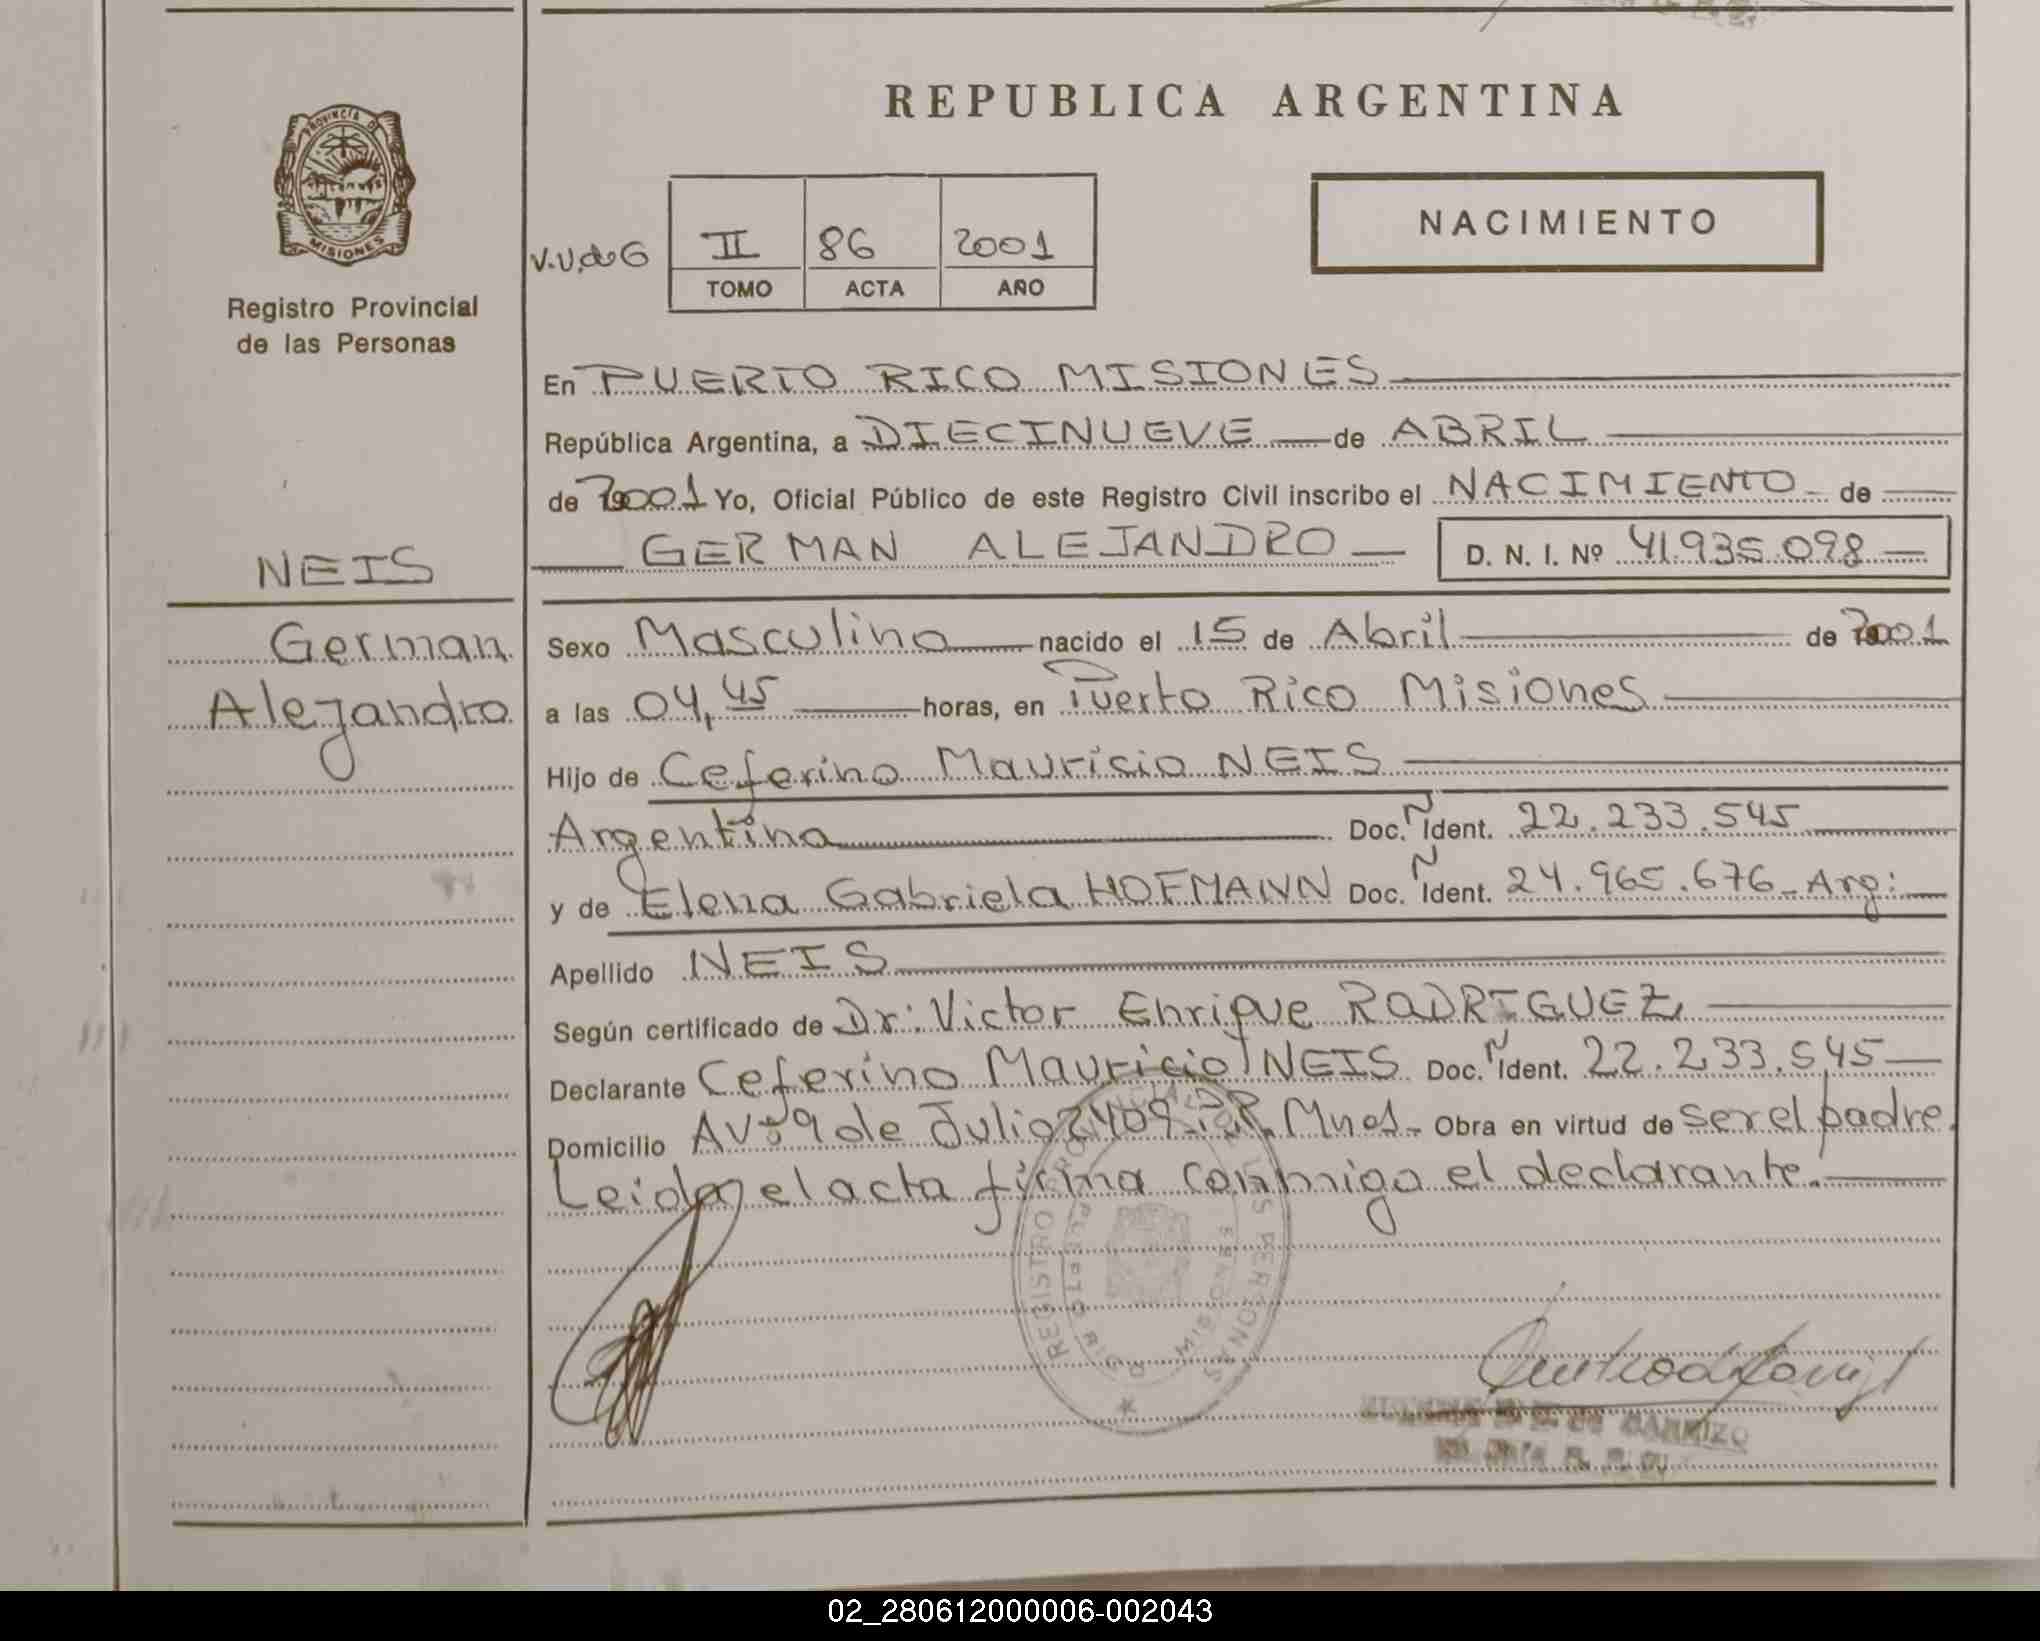 REPUBLICA ARGENTINA
PROVINCIA D
MISIONES
Registro Provincial
de las Personas
V.U.de G
II 86 2001
TOMO ACTA AÑO
NACIMIENTO
En PUERTO RICO MISIONES
República Argentina, a DIECINUEVE de ABRIL
de 2001 Yo, Oficial Público de este Registro Civil inscribo el NACIMIENTO de
GERMAN ALEJANDRO D. N. I. Nº 41.935.098
NEIS
German
Alejandro
Sexo Masculino nacido el 15 de Abril de 2001
a las 04,45 horas, en Puerto Rico Misiones
Hijo de Ceferino Mauricio NEIS
Argentina Doc. Ñ Ident. 22.233.545
y de Elena Gabriela HOFMANN Doc. Ñ Ident. 24.965.676-Arg:
Apellido NEIS
Según certificado de Dr: Victor Enrique RODRIGUEZ
Declarante Ceferino Mauricio NEIS Doc. Ñ Ident. 22.233.545
Domicilio Av: 9 de Julio 2409 P.R. Mnes. Obra en virtud de ser el padre.
Leida el acta firma conmigo el declarante.
REGISTRO PROVINCIAL DE LAS PERSONAS
PUERTO RICO MISIONES
02_280612000006-002043